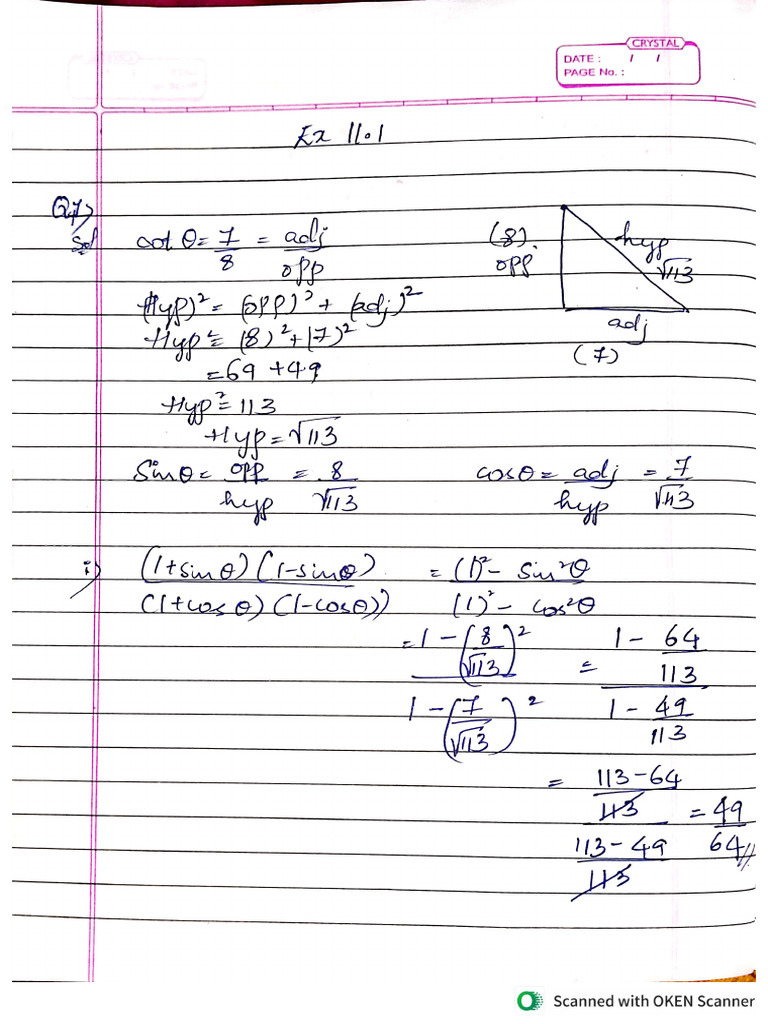 CRYSTAL
DATE : / /
PAGE No. :
Ex 11.1
Q7)
Sol cot θ = 7/8 = adj/opp
(8) opp
hyp √113
adj
(7)
(Hyp)² = (opp)² + (adj)²
Hyp² = (8)² + (7)²
= 69 + 49
Hyp² = 113
Hyp = √113
Sinθ = opp/hyp = 8/√113 cosθ = adj/hyp = 7/√113
i) (1+sinθ)(1-sinθ) / (1+cosθ)(1-cosθ) = (1)² - sin²θ / (1)² - cos²θ
= 1 - (8/√113)² / 1 - (7/√113)² = 1 - 64/113 / 1 - 49/113
= 113-64/113 / 113-49/113 = 49/64 //
Scanned with OKEN Scanner